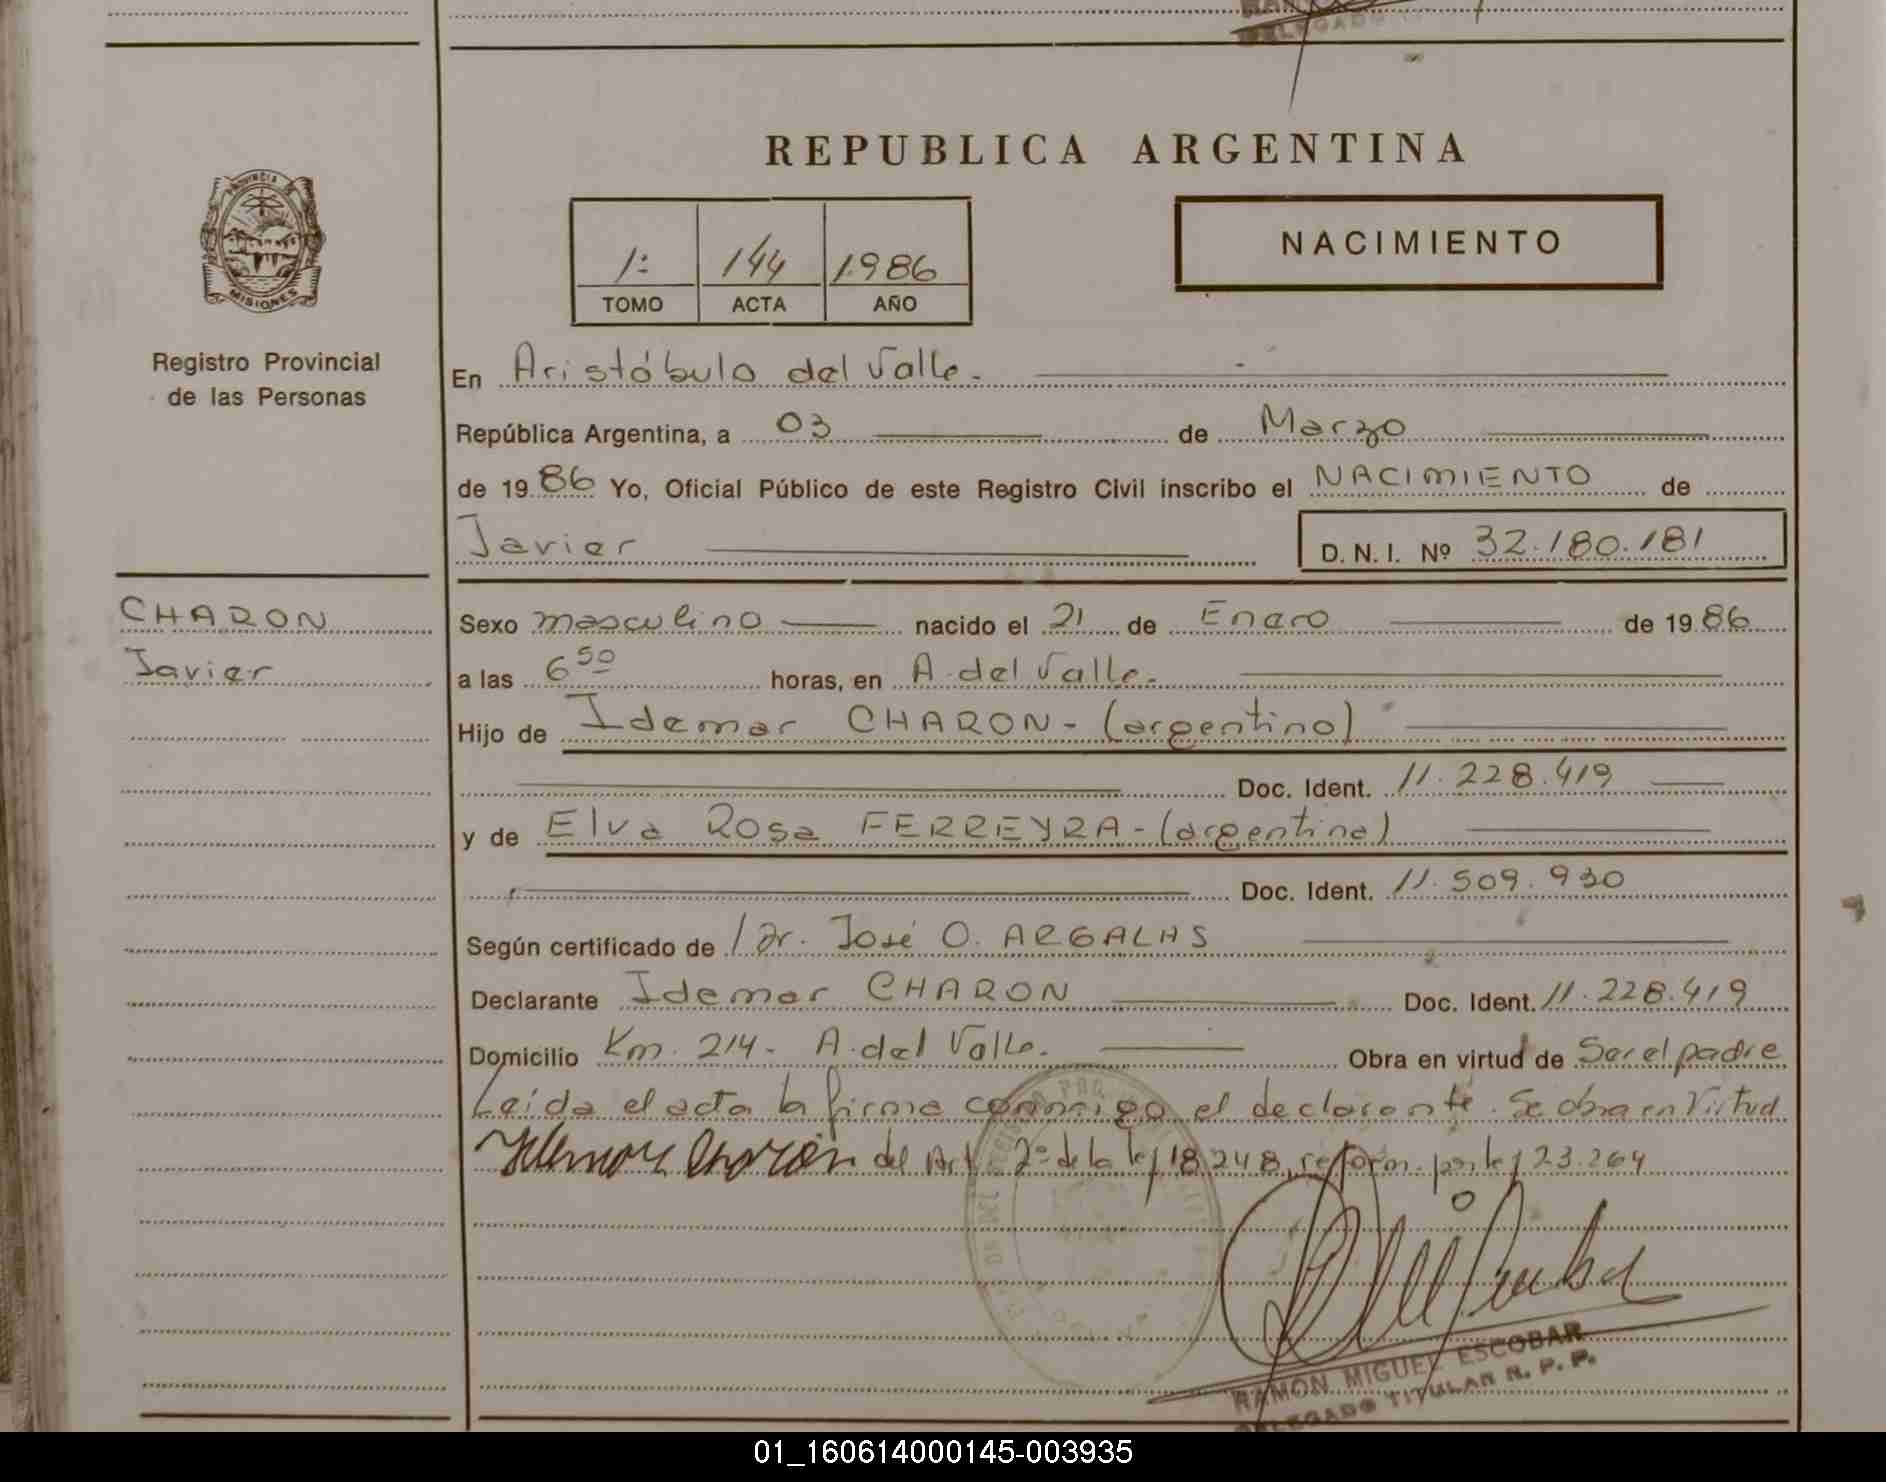 REPUBLICA ARGENTINA
PROVINCIA DE
MISIONES
Registro Provincial
de las Personas
1: 144 1986
TOMO ACTA AÑO
NACIMIENTO
En Aristóbulo del Valle.
República Argentina, a 03 de Marzo
de 1986 Yo, Oficial Público de este Registro Civil inscribo el NACIMIENTO de
Javier D.N.I. Nº 32.180.181
CHARON
Javier
Sexo masculino nacido el 21 de Enero de 1986
a las 6 50 horas, en A. del Valle.
Hijo de Idemar CHARON - (argentino)
Doc. Ident. 11.228.419
y de Elva Rosa FERREYRA - (argentina)
Doc. Ident. 11.509.930
Según certificado de Dr. José O. ARGALAS
Declarante Idemar CHARON Doc. Ident. 11.228.419
Domicilio Km. 214 - A. del Valle. Obra en virtud de Ser el padre
Leída el acta la firma conmigo el declarante. Se obra en Virtud
Idemar Charon del Art. 2º de la ley 18.248, reform. por ley 23.264
RAMON MIGUEL ESCOBAR
DELEGADO TITULAR R. P. P.
01_160614000145-003935